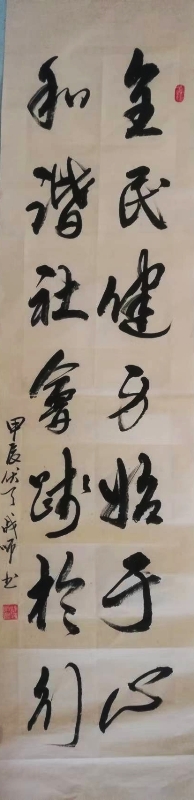 全民健身始于心
和谐社会践於行
甲辰伏天
书